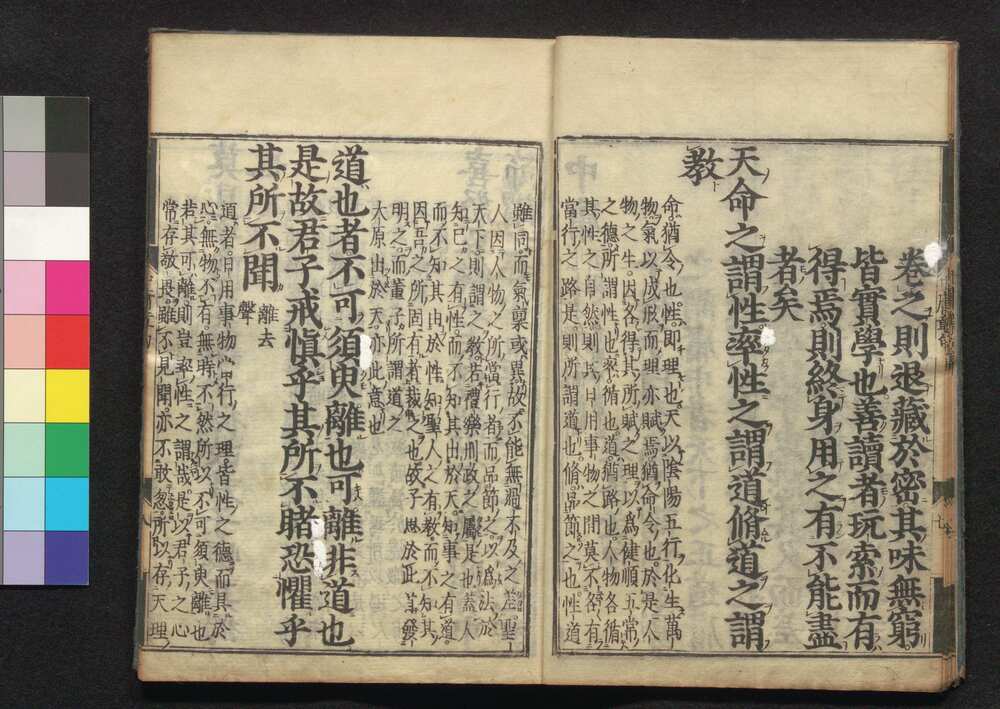 卷之則退藏於密其味無窮
皆實學也善讀者玩索而有
得焉則終身用之有不能盡
者矣
天命之謂性率性之謂道脩道之謂
教
命猶令也性即理也天以陰陽五行化生萬
物氣以成形而理亦賦焉猶命令也於是人
物之生因各得其所賦之理以為健順五常
之德所謂性也率循也道猶路也人物各循
其性之自然則其日用事物之間莫不各有
當行之路是則所謂道也脩品節之也性道
雖同而氣稟或異故不能無過不及之差聖
人因人物之所當行者而品節之以為法於
天下則謂之教若禮樂刑政之屬是也蓋人
知己之有性而不知其出於天知事之有道
而不知其由於性知聖人之有教而不知其
因吾之所固有者裁之也故子思於此首發
明之而董子所謂道之
大原出於天亦此意也
道也者不可須臾離也可離非道也
是故君子戒慎乎其所不睹恐懼乎
其所不聞
離去
聲
道者日用事物當行之理皆性之德而具於
心無物不有無時不然所以不可須臾離也
若其可離則豈率性之謂哉是以君子之心
常存敬畏雖不見聞亦不敢忽所以存天理